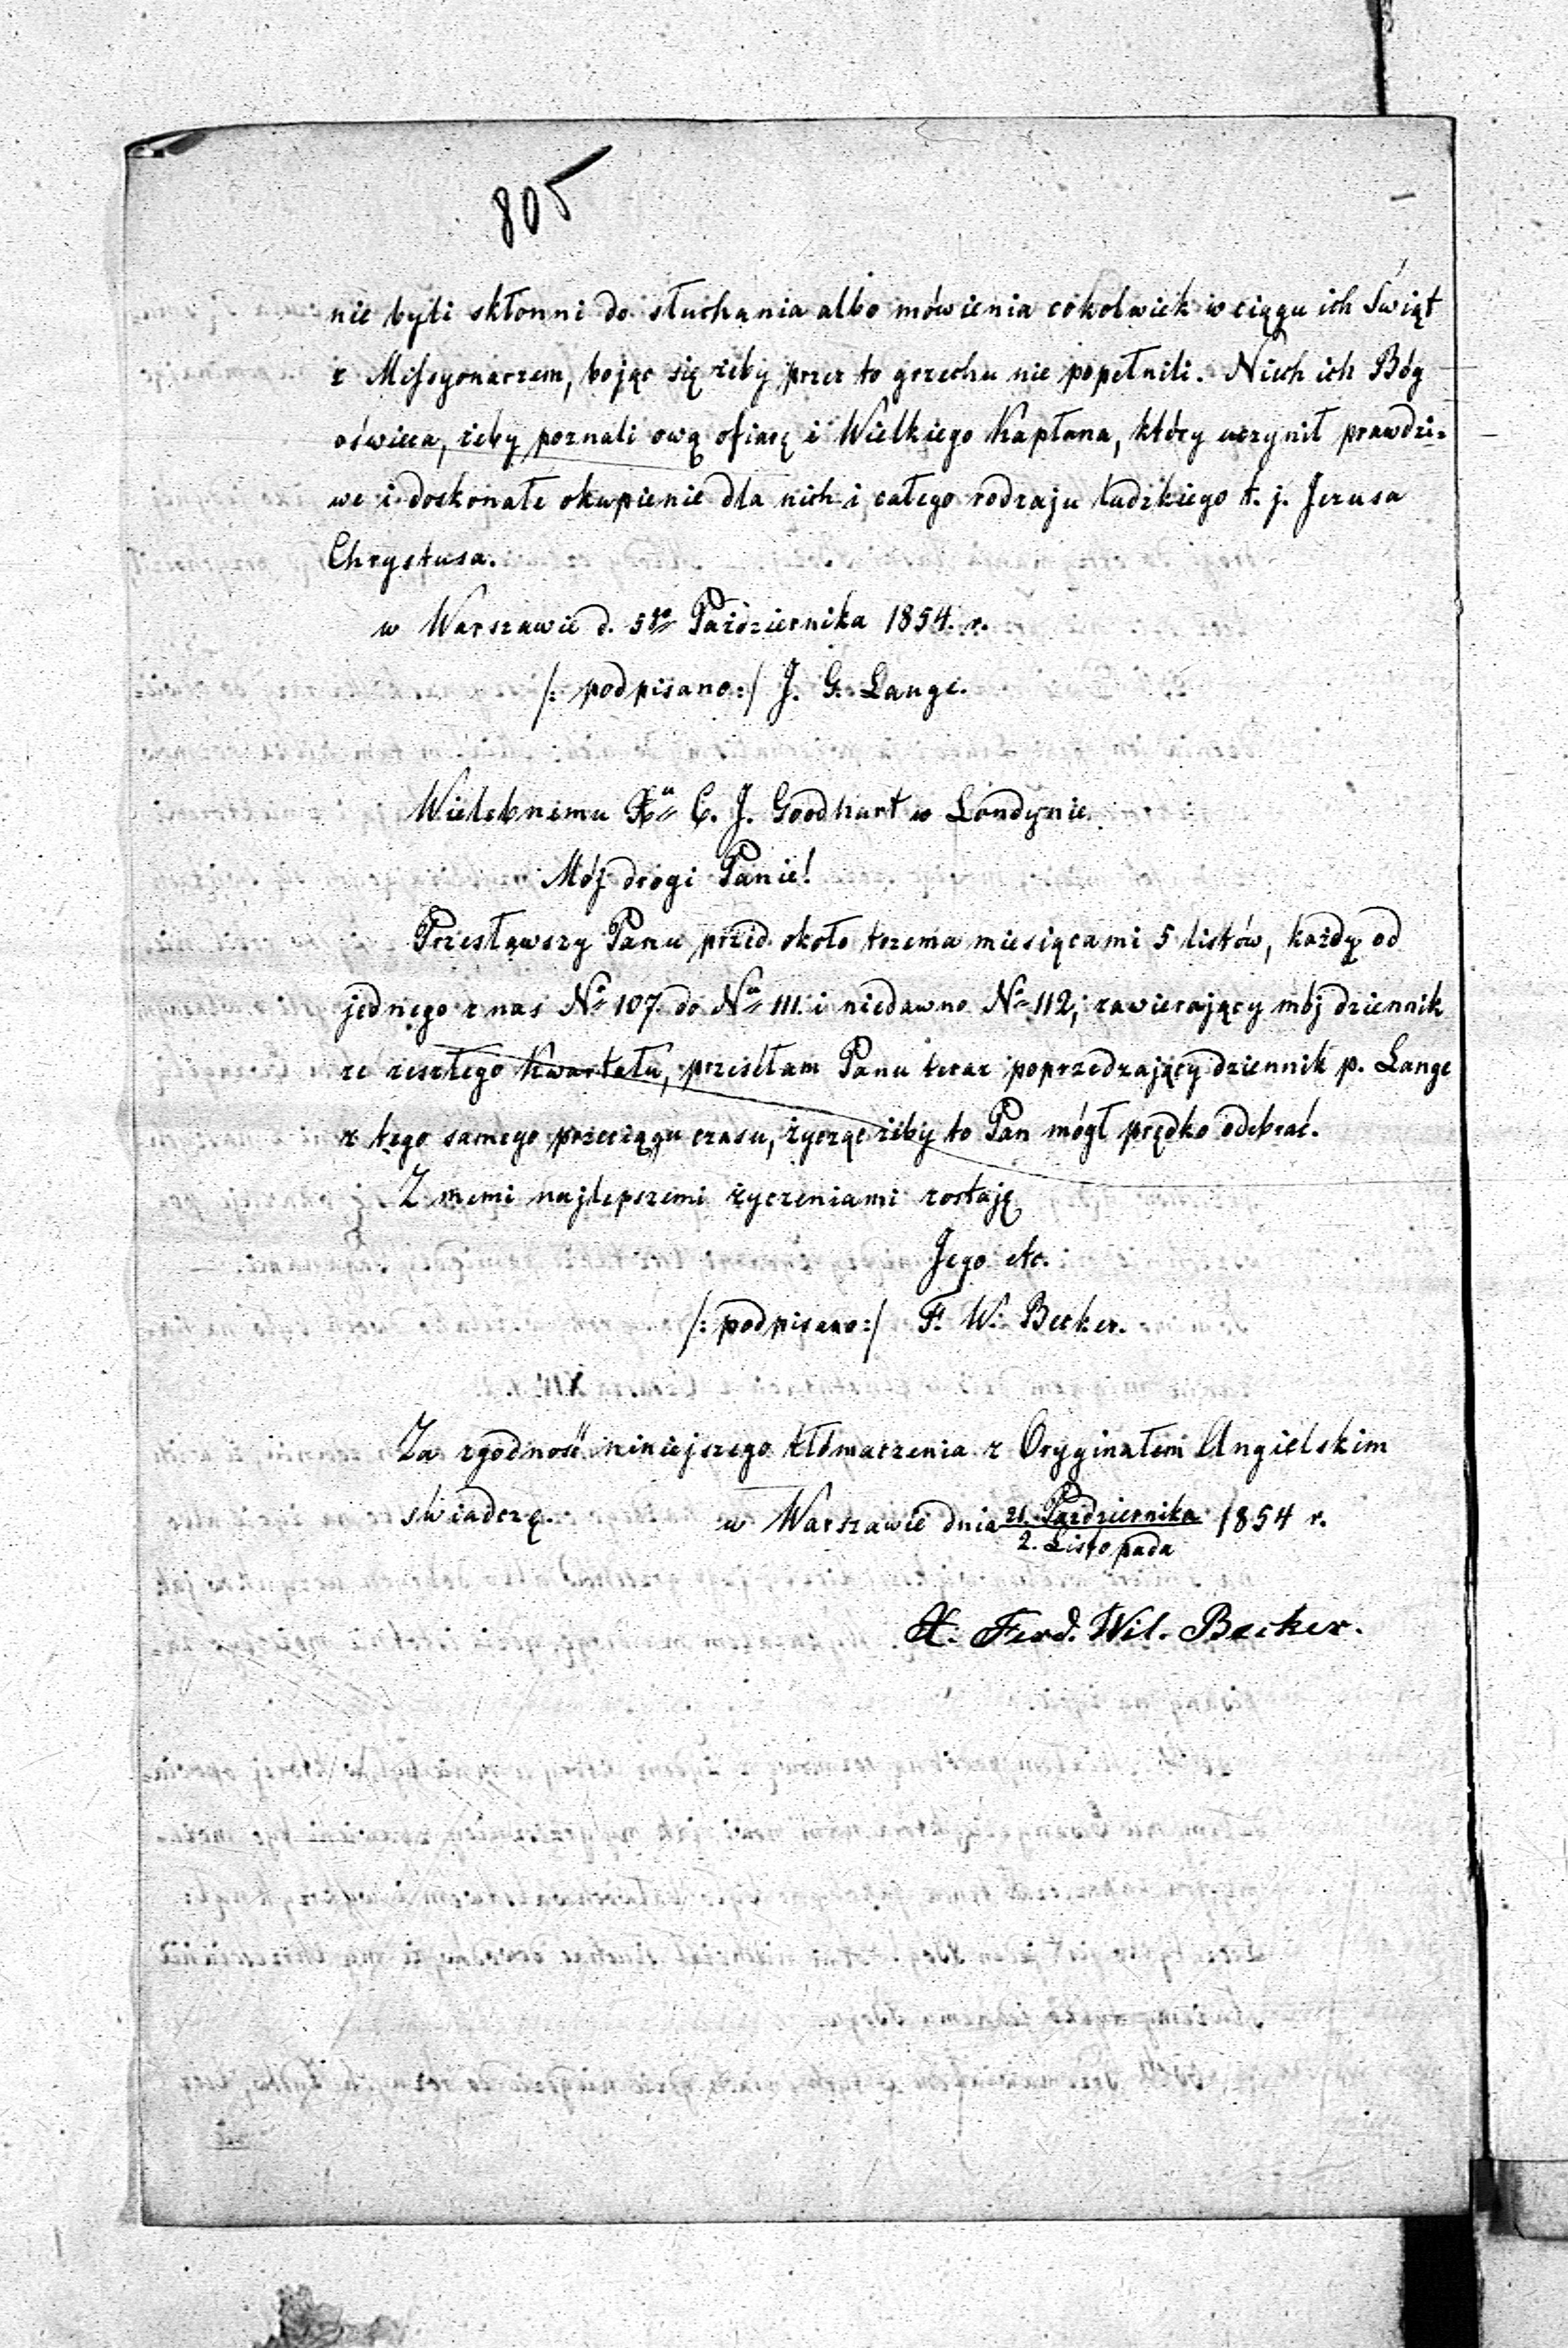 805
nie byli skłonni do słuchania albo mówienia cokolwiek w ciągu ich Świąt
z Missyonarzem, bojąc się żeby przez to grzechu nie popełnili. Niech ich Bóg
oświeca, żeby poznali ową ofiarę i Wielkiego Kapłana, który uczynił prawdzi=
we i doskonałe okupienie dla nich i całego rodzaju ludzkiego t. j. Jezusa
Chrystusa.
w Warszawie d. 5go Października 1854. r.
/: podpisano :/ J. G. Lange.
Wielebnemu Xu C. J. Goodhart w Londynie.
Mój drogi Panie!
Przesławszy Panu przed około trzema miesiącami 5 listów, każdy od
jednego z nas No 107. do Nu 111. i niedawno No 112, zawierający mój dziennik
ze zeszłego Kwartału, przesełam Panu teraz poprzedzający dziennik p. Lange
z tego samego przeciągu czasu, życząc żeby to Pan mógł prędko odebrać.
Z memi najlepszemi życzeniami zostaję
Jego etc.
/: podpisano :/ F. W. Becker.
Za zgodność niniejszego tłómaczenia z Oryginałem Angielskim
świadczę.
w Warszawie dnia 21. Października / 2. Listopada 1854 r.
X. Ferd. Wil. Becker.